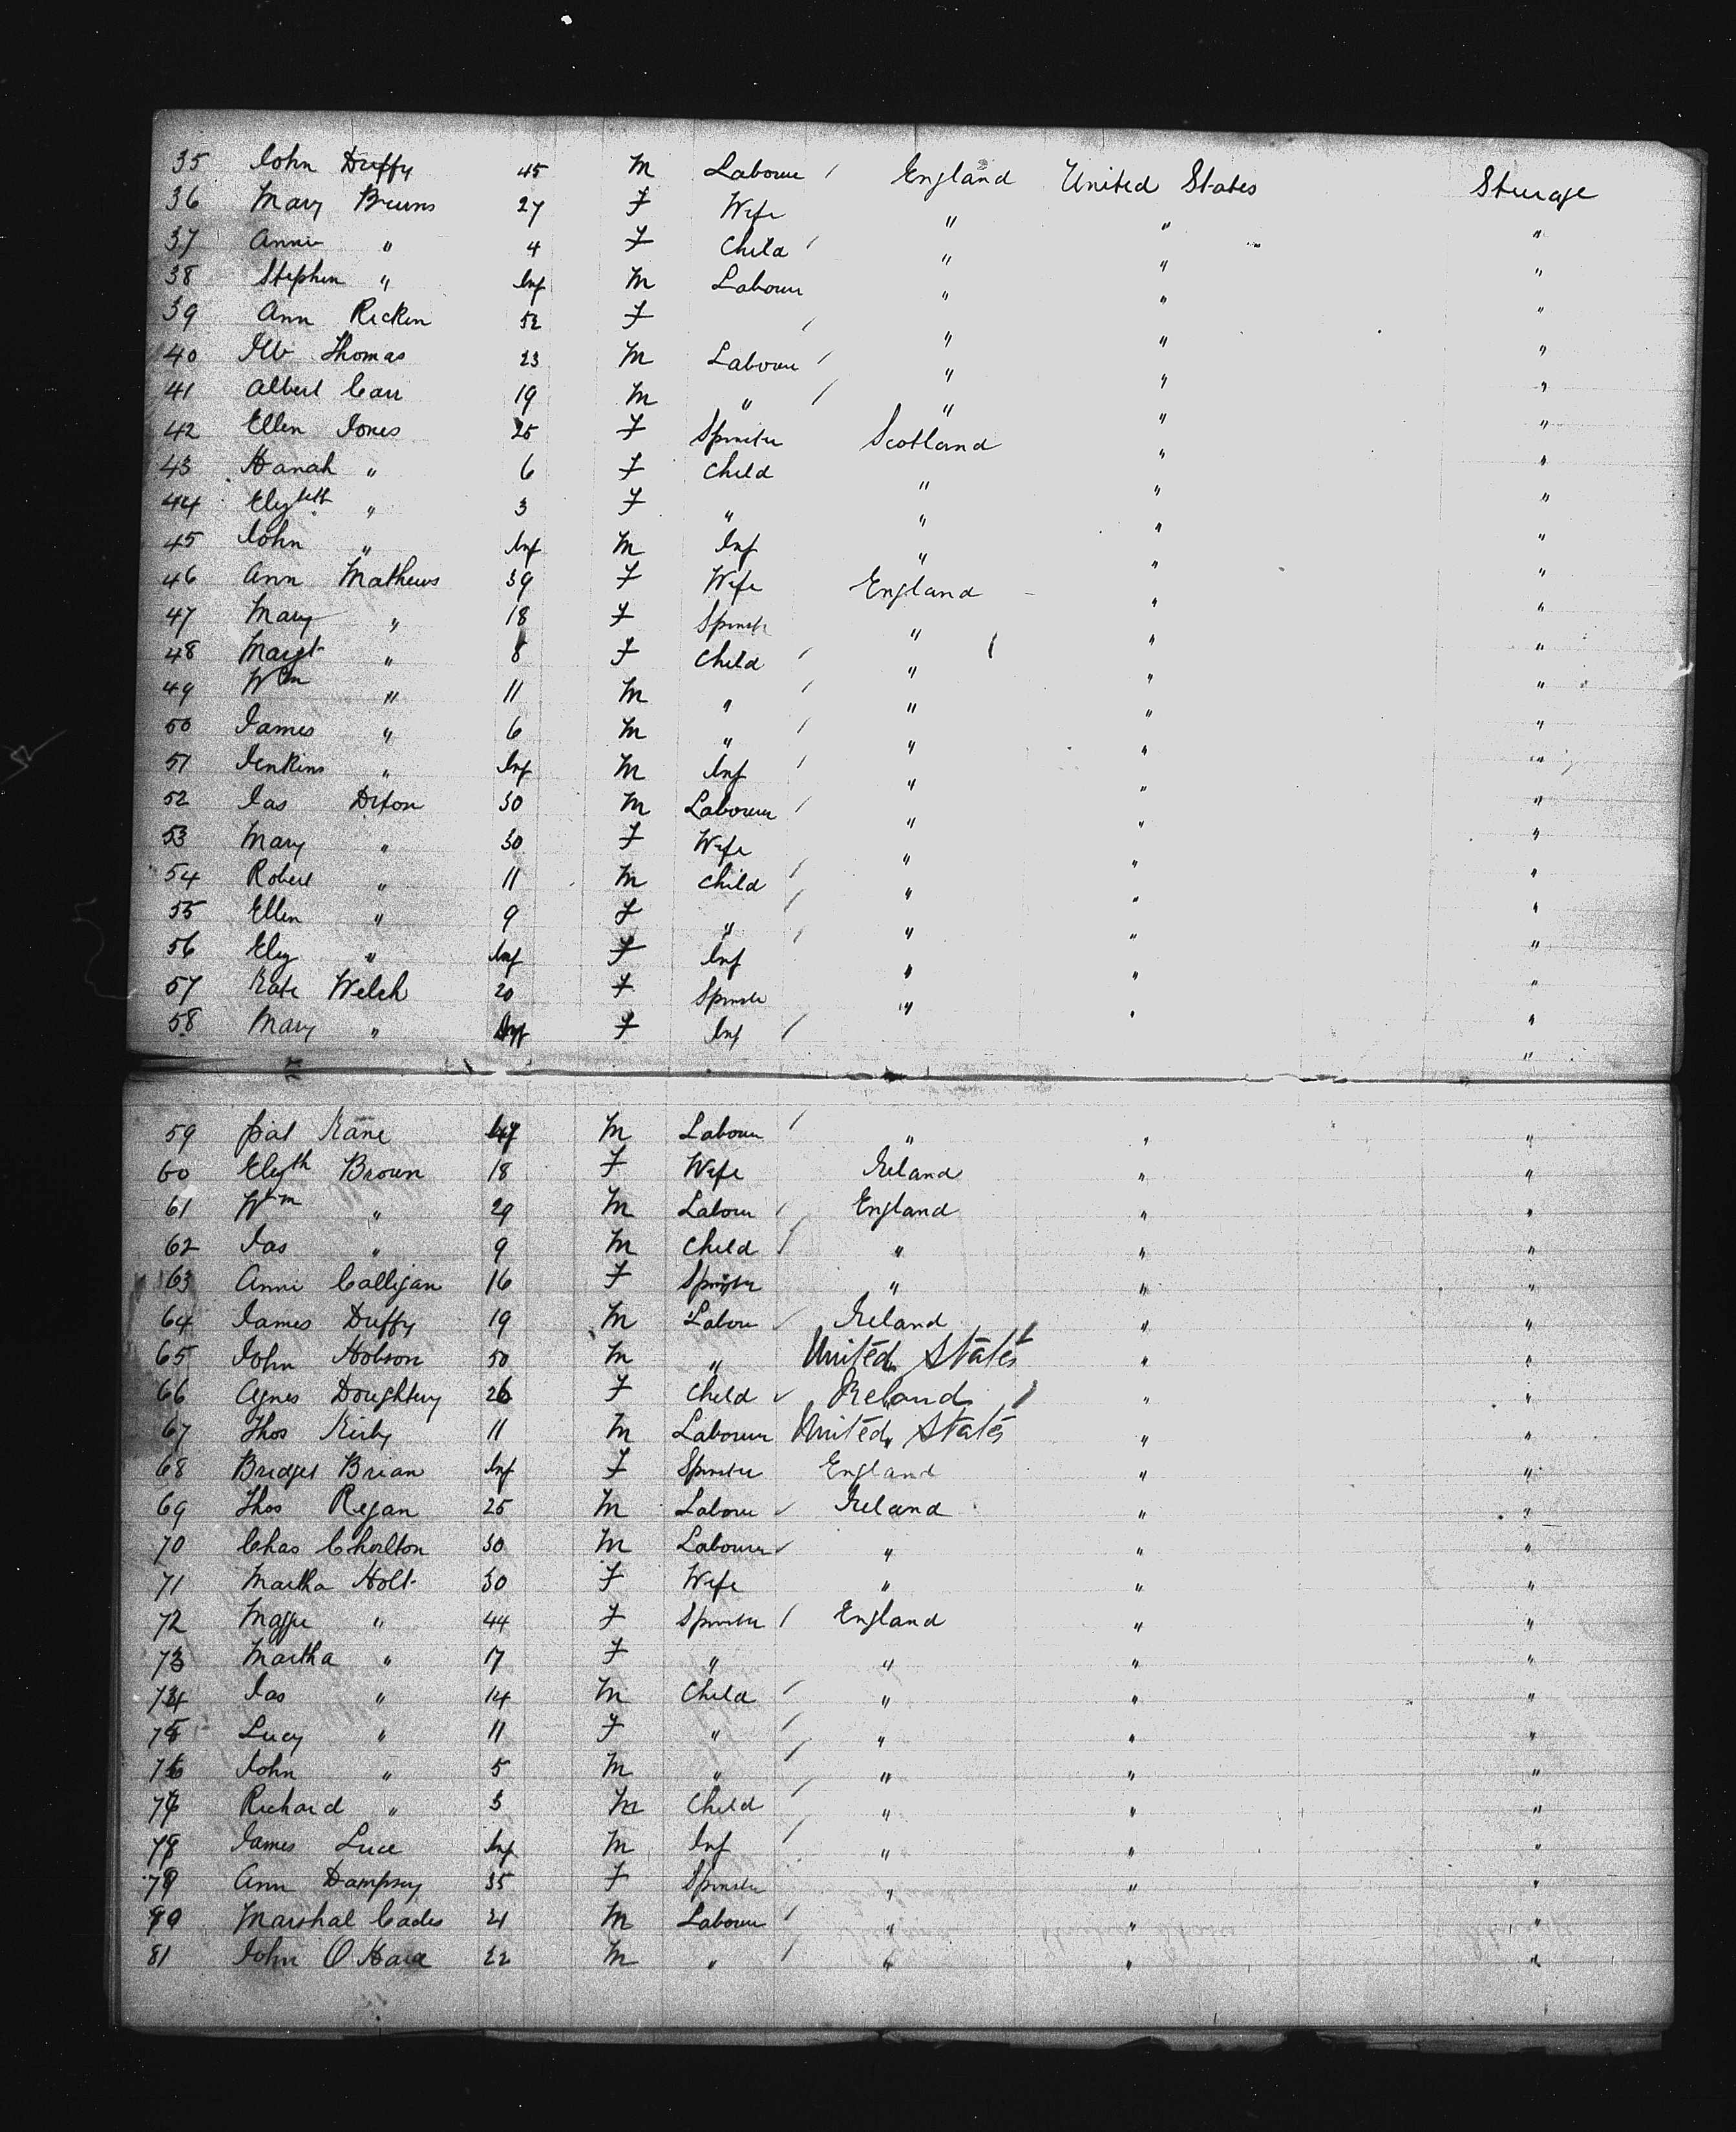 35 John Duffy 45 M Labourer / England United States Steerage
36 Mary Burns 27 F Wife " " "
37 Annie " 4 F Child / " " "
38 Stephen " Inf M Labourer " " "
39 Ann Ricken 52 F / " " "
40 Thomas 23 M Labourer / " " "
41 Albert Carr 19 M " / " " "
42 Ellen Jones 25 F Spinster Scotland " "
43 Hanah " 6 F Child " " "
44 Elizbth " 3 F " " " "
45 John " Inf M Inf " " "
46 Ann Mathews 39 F Wife England " "
47 Mary " 18 F Spinstr " " "
48 Margt " 8 F Child / " " "
49 Wm " 11 M " / " " "
50 James " 6 M " / " " "
51 Jenkins " Inf M Inf / " " "
52 Jas Dixon 30 M Labourer / " " "
53 Mary " 30 F Wife " " "
54 Robert " 11 M Child / " " "
55 Ellen " 9 F " / " " "
56 Eliz " Inf F Inf / " " "
57 Kate Welch 20 F Spinster " " "
58 Mary " Inf F Inf / "
59 Pat Kane 47 M Labourer / " " "
60 Elizth Brown 18 F Wife Ireland " "
61 Wm " 29 M Labour / England " "
62 Jas " 9 M Child / " " "
63 Annie Calligan 16 F Spinster " " "
64 James Duffy 19 M Labour ✓ Ireland " "
65 John Hobson 50 M " United States " "
66 Agnes Doughterty 26 F Child ✓ Ireland / " "
67 Thos Kirby 11 M Labourer United States " "
68 Bridget Brian Inf F Spinster England " "
69 Thos Regan 25 M Labour ✓ Ireland " "
70 Chas Chorlton 30 M Labourer ✓ " " "
71 Martha Holt 30 F Wife " " "
72 Maggie " 44 F Spinster / England " "
73 Martha " 17 F " " " "
74 Jas " 14 M Child / " " "
75 Lucy " 11 F " / " " "
76 John " 5 M " / " " "
77 Richard " 3 M Child / " " "
78 James Luce Inf M Inf / " " "
79 Ann Dampsey 35 F Spinster " " "
80 Marshal Cades 21 M Labour / " " "
81 John O Hara 22 M " / " " "